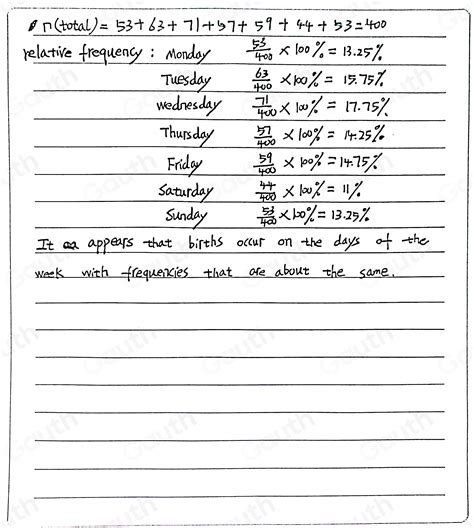 n(total) = 53+63+71+57+59+44+53=400
relative frequency : Monday 53/400 ×100%=13.25%
Tuesday 63/400 ×100%= 15.75%
wednesday 71/400 ×100% = 17.75%
Thursday 57/400 ×100% = 14.25%
Friday 59/400 ×100%=14.75%
Saturday 44/400 ×100% = 11%
Sunday 53/400 ×100%= 13.25%
It appears that births occur on the days of the
week with frequencies that are about the same.
Gauth